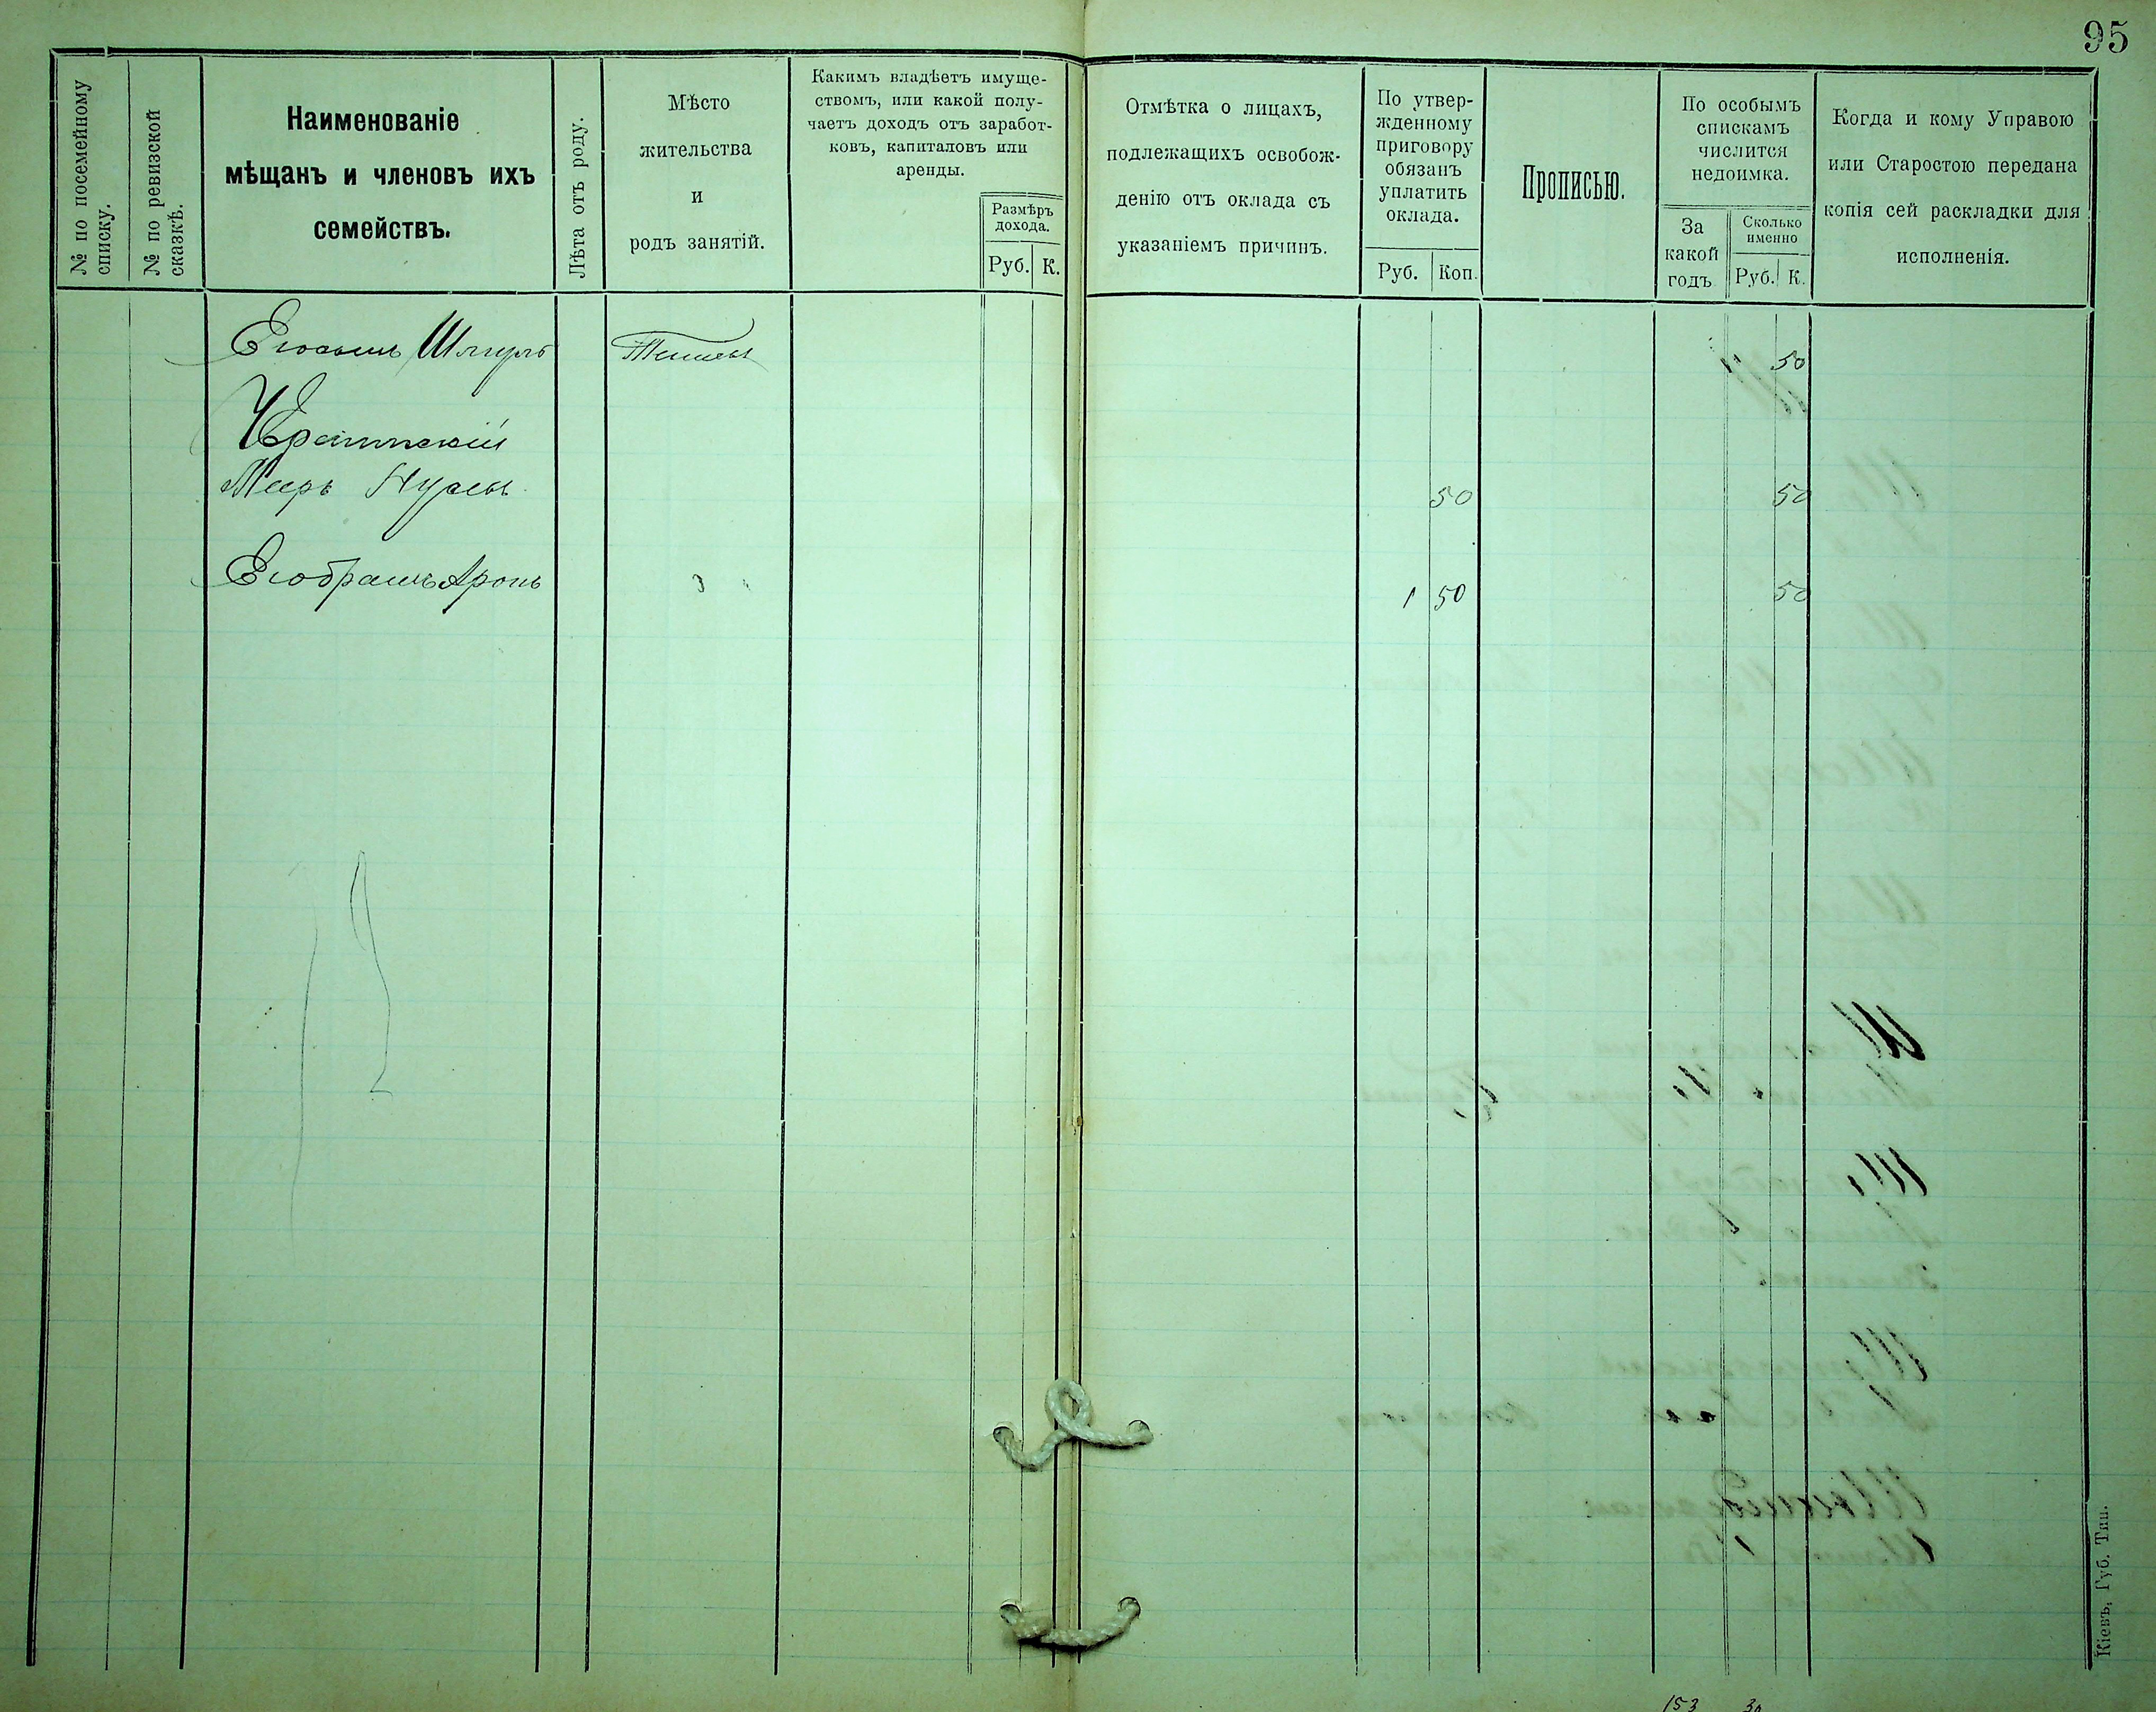 95
№ по посемейному
списку.
№ по ревизской
сказкѣ.
Наименованіе
мѣщанъ и членовъ ихъ
семействъ.
Лѣта отъ роду.
Мѣсто
жительства
и
родъ занятій.
Какимъ владѣетъ имуще-
ствомъ, или какой полу-
чаетъ доходъ отъ заработ-
ковъ, капиталовъ или
аренды.
Размѣръ
дохода.
Руб. К.
Отмѣтка о лицахъ,
подлежащихъ освобож-
денію отъ оклада съ
указаніемъ причинъ.
По утвер-
жденному
приговору
обязанъ
уплатить
оклада.
Руб. Коп.
Прописью.
По особымъ
спискамъ
числится
недоимка.
За
какой
годъ
Сколько
именно
Руб. К.
Когда и кому Управою
или Старостою передана
копія сей раскладки для
исполненія.
Шмуль 50
50 50
Аронъ 1 50 50
153 30
Кіевъ, Губ. Тип.